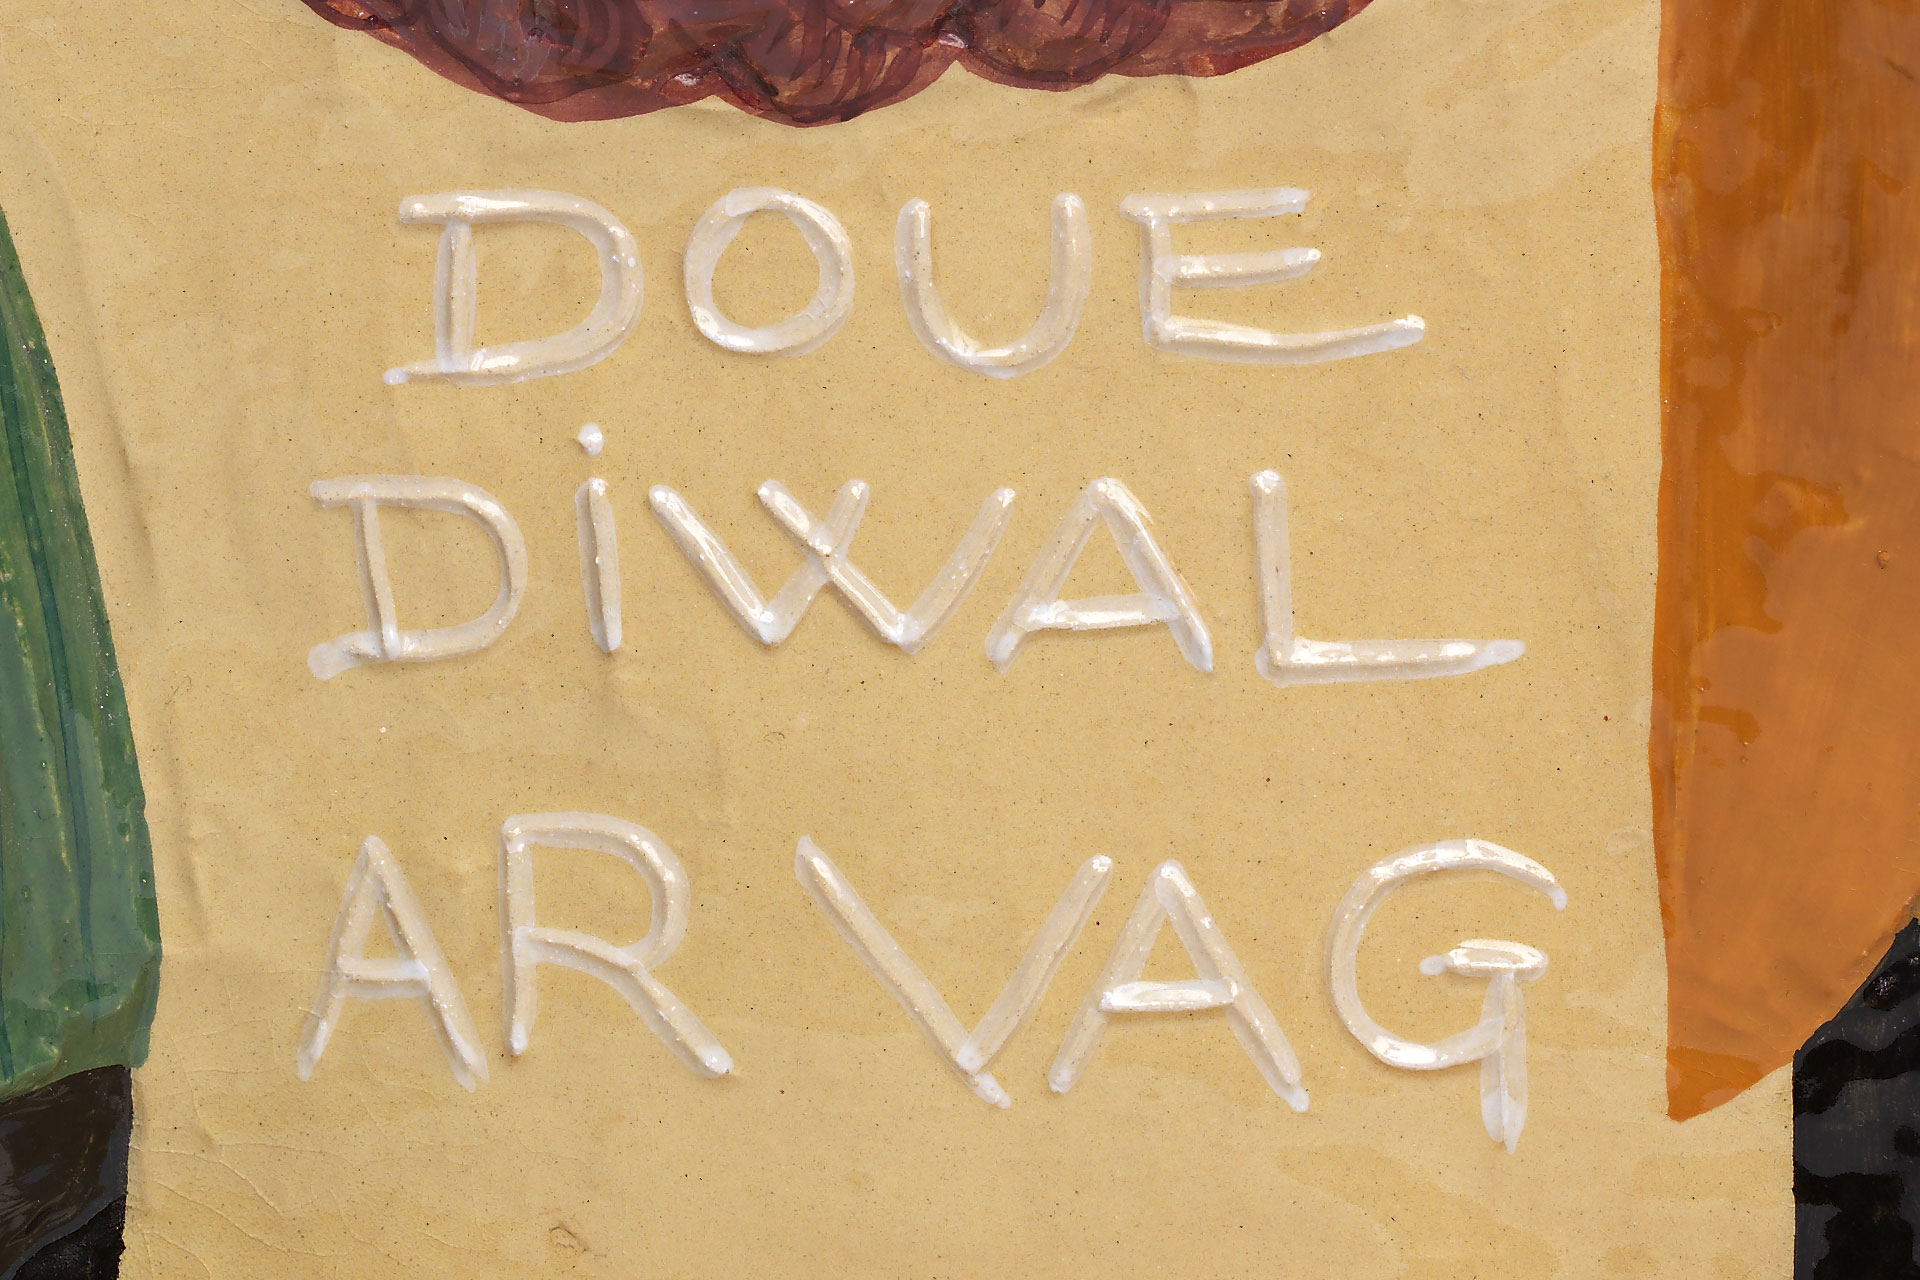 DOUE
DiWAL
AR VAG